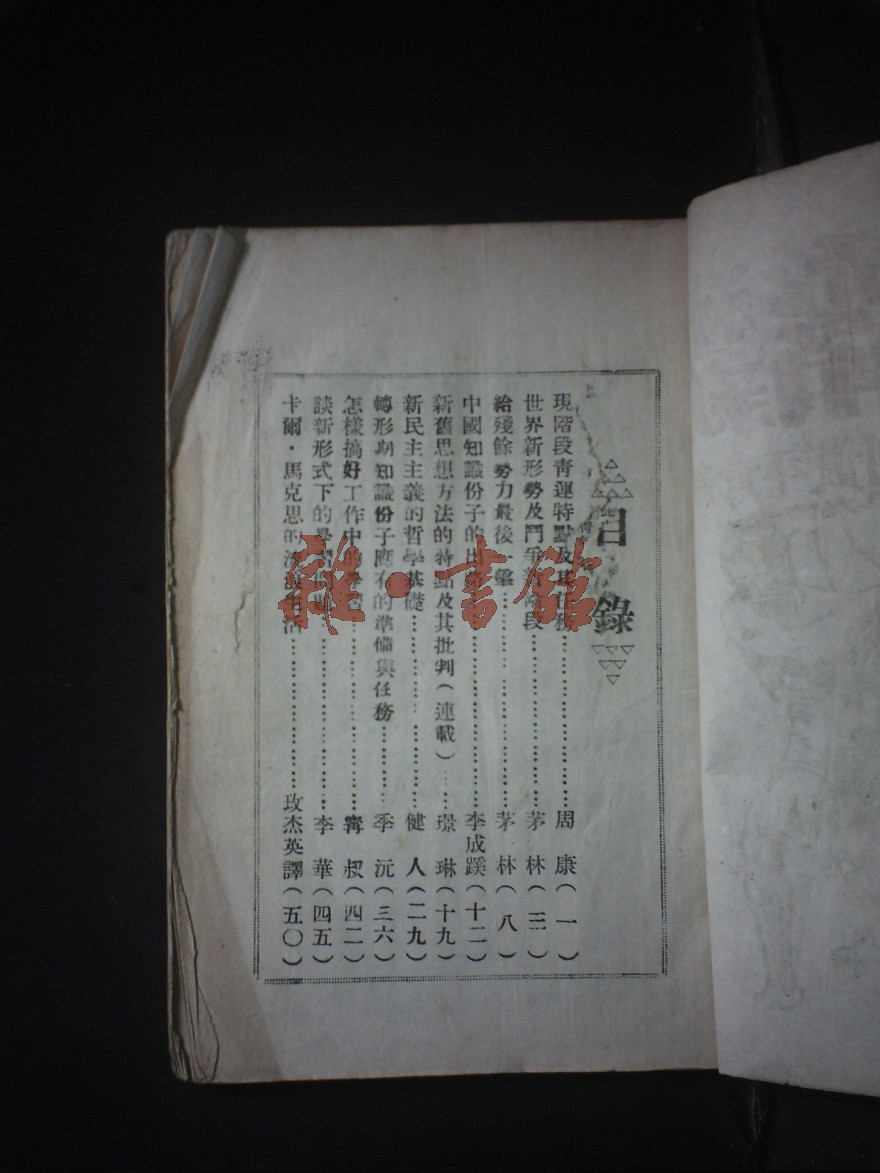 目錄
現階段青運特點及其任務……………………周康(一)
世界新形勢及鬥爭新階段……………………茅林(三)
給殘餘勢力最後一擊……………………茅林(八)
中國知識份子的出路……………………李成蹊(十二)
新舊思想方法的特點及其批判(連載)……璟琳(十九)
新民主主義的哲學基礎……………………健人(二九)
轉形期知識份子應有的準備與任務…………季沅(三六)
怎樣搞好工作中的學習……………………寗叔(四二)
談新形式下的學習問題……………………李華(四五)
卡爾·馬克思的 生活……………………玫杰英譯(五〇)
雜·書館